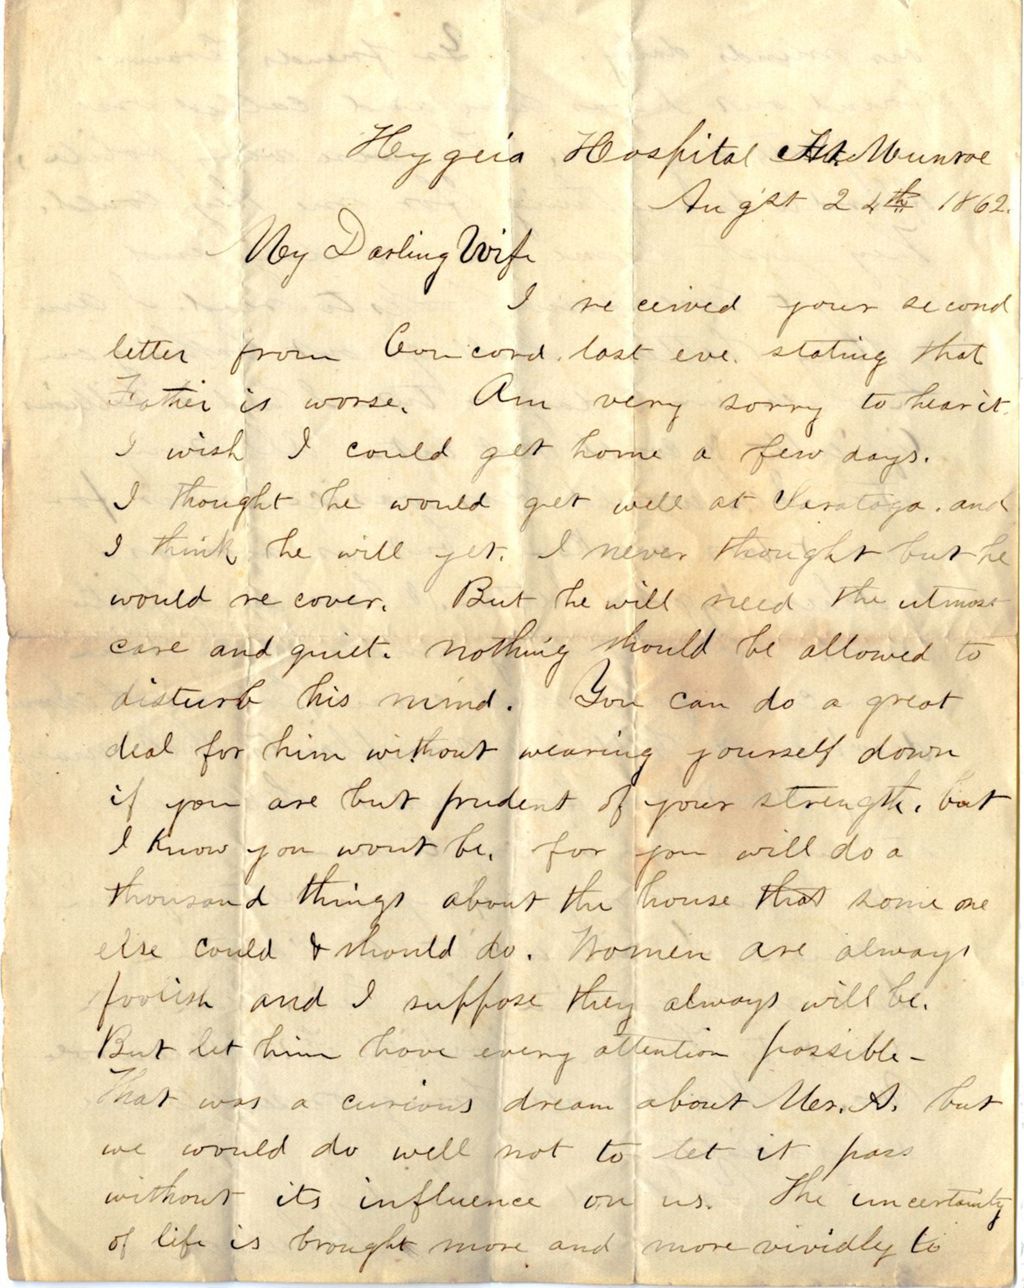 Hygeia Hospital Ft. Munroe
Aug'st 24th 1862.
My Darling Wife
I received your second
letter from Concord last eve. stating that
Father is worse. Am very sorry to hear it.
I wish I could get home a few days.
I thought he would get well at Saratoga. and
I think he will yet. I never thought but he
would recover. But he will need the utmost
care and quiet. nothing should be allowed to
disturb his mind. You can do a great
deal for him without wearing yourself down
if you are but prudent of your strength. but
I know you wont be. for you will do a
thousand things about the house that some one
else could & should do. Women are always
foolish and I suppose they always will be.
But let him have every attention possible -
That was a curious dream about Mer. A. but
we would do well not to let it pass
without its influence on us. The uncertainty
of life is brought more and more vividly to